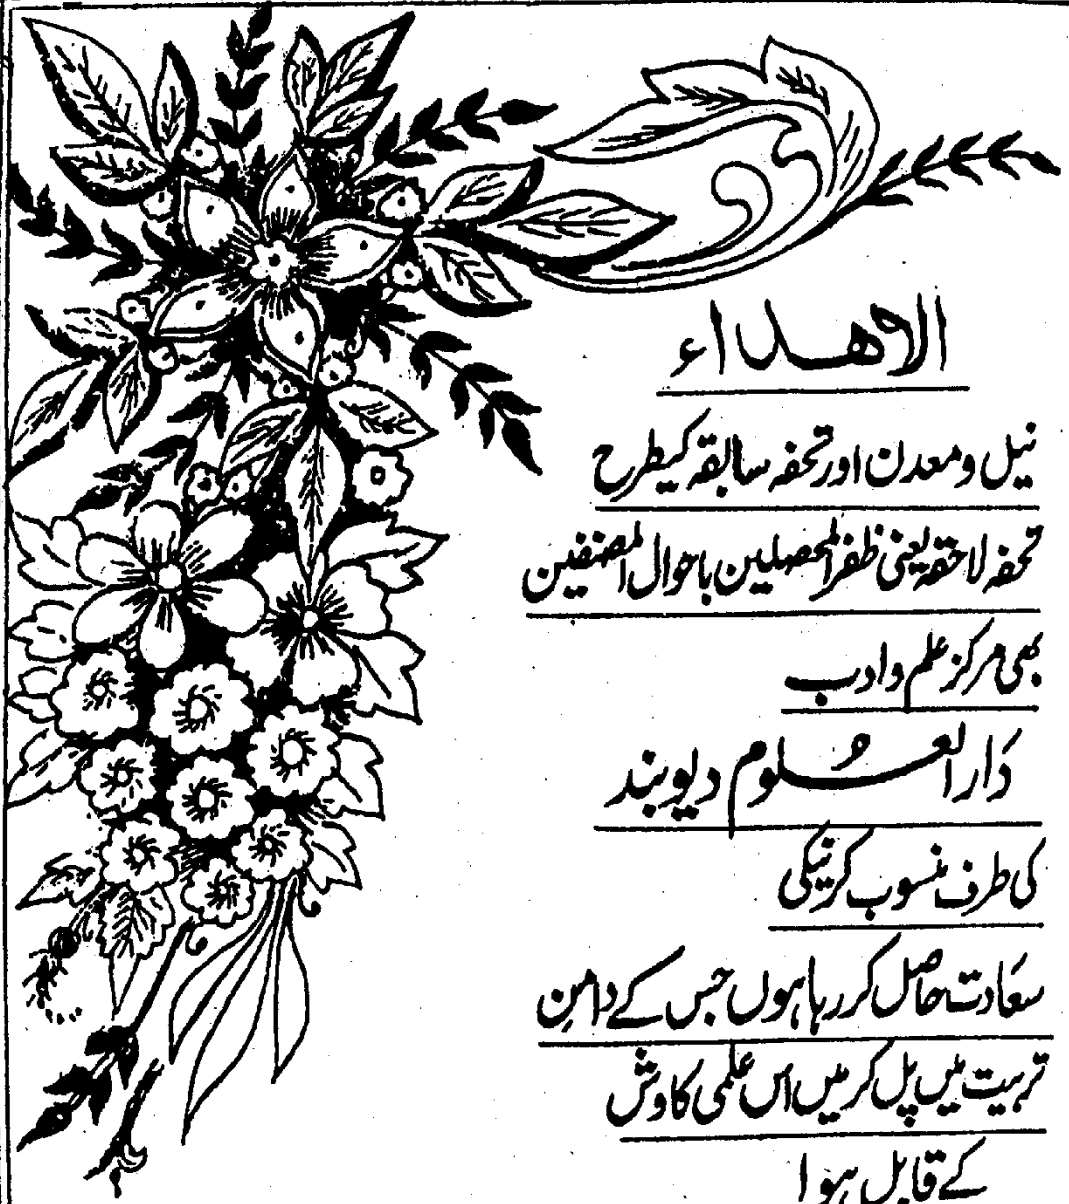 الاھداء
نیل و معدن اور تحفہ سابقہ کیطرح
تحفہ لاحقہ یعنی ظفر المحصلین باحوال المصنفین
بھی مرکز علم و ادب
دار العلوم دیوبند
کی طرف منسوب کرنیکی
سعادت حاصل کر رہا ہوں جس کے دامن
تربیت میں پل کر میں اس علمی کاوش
کے قابل ہوا